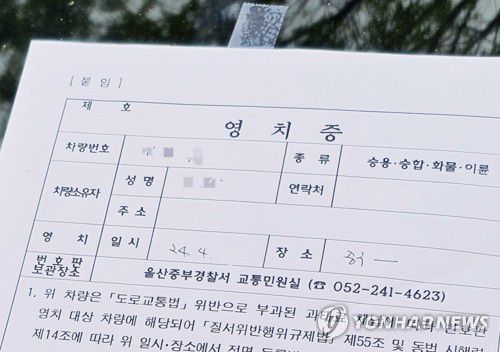 [ 붙 임 ]
제 호
영 치 증
차량번호 종 류 승용·승합·화물·이륜
차량소유자 성 명 연락처
주 소
영 치 일 시 24. 4. 장 소
번 호 판
보관장소 울산중부경찰서 교통민원실 (☎ 052-241-4623)
1. 위 차량은 「도로교통법」 위반으로 부과된
영치 대상 차량에 해당되어 「질서위반행위규제법」 제55조 및 동법 시행령
제14조에 따라 위 일시·장소에서
연합뉴스
YONHAPNEWS